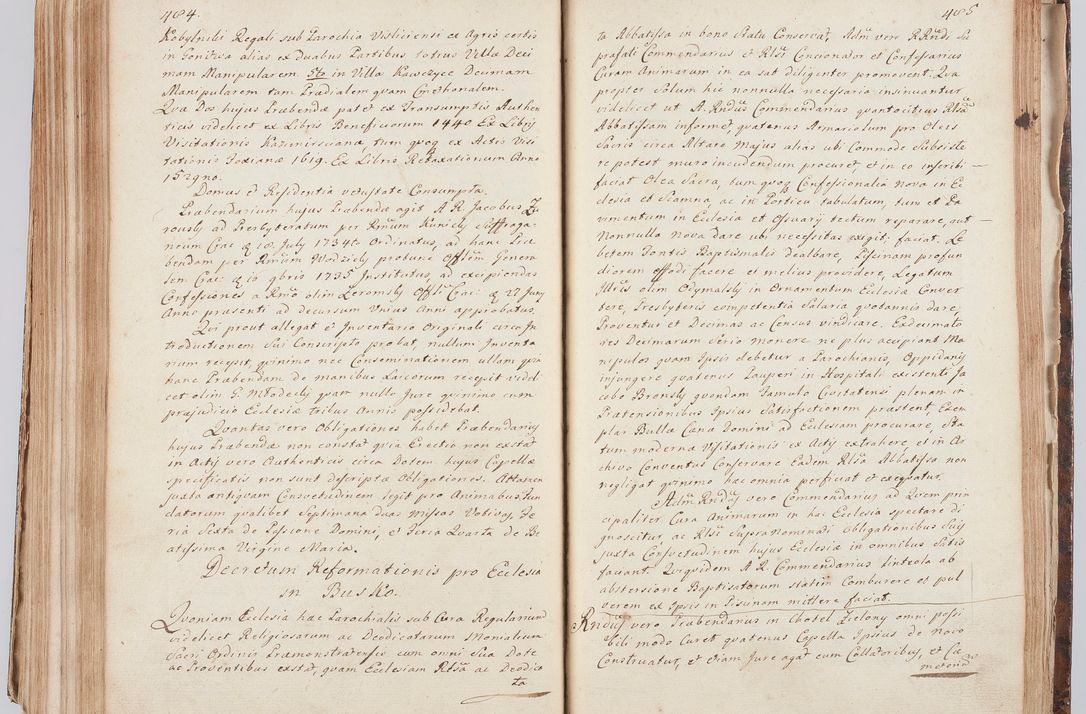 484.
Kobylniki Regali sub Parochia Visliciensi ex Agris certis
in Genitva alias ex Duabus Partibus totius Villa Deci
mam Manipularem. 5to in Villa Kawczyce Decimam
Manipularem tam Prædialem quam Cmethonalem.
Qua Dos hujus Præbendæ patet ex Transumptis Authen
ticis videlicet ex Libris Beneficiorum 1440 Ex Libris
Visitationis Kazimirsciana, tum quoq ex Actis Visi
tationis Foxianæ 1619. Ex Libro Retaxationum Anno
1529no.
Domus et Residentia vetustate Consumpta.
Præbendarium hujus Præbendæ agit A R. Jacobus
rowsky ad Presbyteratum per Rmum Kunicky Suffraga-
neum Crac: 18. July 1734to Ordinatus, ad hanc Præ
bendam per Rmum Wodzicky protunc Offlem Genera
lem Crac: 10 9bris 1735 Institutus, ad excipiendas
Confessiones a Rmo olim Zeromsky Offli Crac: 27 Juny
Anno præsenti ad decursum Unius Anni approbatus.
Qui prout allegat et Inventario Originali circa In
troductionem Sui Conscripto probat, nullum Inventa
rium recepit, quinimo nec Conseminationem ullam pro
hanc Præbendam de manibus Laicorum recepit videl
cet olim G. Młodecky quam nullo Jure quinimo cum
præjudicio Ecclesiæ tribus Annis possidebat.
Quantas vero Obligationes habet Præbendarius
hujus Præbendæ non constat quia Erectio non extat
in Actis vero Authenticis circa Dotem hujus Capellæ
specificatis non sunt descriptæ Obligationes. Attamen
juxta antiquam Consvetudinem legit pro Animabus Fun
datorum qualibet Septimana duas Missas Votivas, Fe
ria Sexta de Passione Domini, et Feria Quarta de Be
atissima Virgine Maria.
Decretum Reformationis pro Ecclesia
in Busko.
Quoniam Ecclesia hæc Parochialis sub Cura Regularium
videlicet Religiosarum ac Deodicatarum Monialium
Sacri Ordinis Præmonstratensis cum omni Sua Dote
ac Proventibus extat, quam Ecclesiam Rlsa ac Deodica
ta
485
ta Abbatissa in bono Statu Conservat. Adm vero R.Rndi Su
prafati Commendarius et Rlsi Concionator et Confessarius
Curam Animarum in ea sat diligenter promovent. Qua
propter Solum hic nonnulla necessaria insinuantur
videlicet ut A. Rndus Commendarius quantocitius Rlsam
Abbatissam informet, quatenus Armariolum pro Oleis
Sacris circa Altare Majus alias ubi Commode Subsiste
re potest muro incudendum procuret, et in eo inscribi
faciat Olea Sacra, tum quoq Confessionalia Nova in Ec
clesia et Scamna, ac in Porticu tabulatum, tum et Pa
vimentum in Ecclesia et Ossuarij tectum reparare, aut
Nonnulla Nova dare ubi necessitas exigit faciat. Le
betem Fontis Baptismalis dealbare, Piscinam profun
diorem effodi facere et melius providere, Legatum
Illius olim Odymalsky in Ornamentum Ecclesiæ Conver
tere, Presbyteris competentia Salaria quotannis dare,
Proventus et Decimas ac Census vindicare. Exdecimato
res Decimarum Serio monere ne plus accipiant Ma
nipulos quam Ipsis debetur a Parochianis, Oppidanis
injungere quatenus Pauperi in Hospitali existenti Ja
cobo Bronsky quondam Famulo Civitatensi plenam in
Prætensionibus Ipsius Satisfactionem præstent, Exem
plar Bullæ Cæna Domini ad Ecclesiam procurare, Sta
tum modernæ Visitationis ex Actis extrahere, et in Ar
chivo Conventus Conservare Eadem Rlsa Abbatissa non
negligat quinimo hæc omnia perficiat et exequatur.
Adm Rndus vero Commendarius ad Quem prin
cipaliter Cura Animarum in hac Ecclesia spectare di
gnoscitur, ac Rlsi Supra Nominati Obligationibus Suis
juxta Consvetudinem hujus Ecclesiæ in omnibus Satis
faciant. Quiquidem A R. Commendarius linteola ab
abstersione Baptisatorum statim Comburere et pul
verem ex Ipsis in Piscinam mittere faciat.
Rndus vero Præbendarius in Chotel Zielony omni possi
bili modo Curet quatenus Capella Ipsius de Novo
Construatur, et etiam Jure agat cum Collatoribus, et Ca